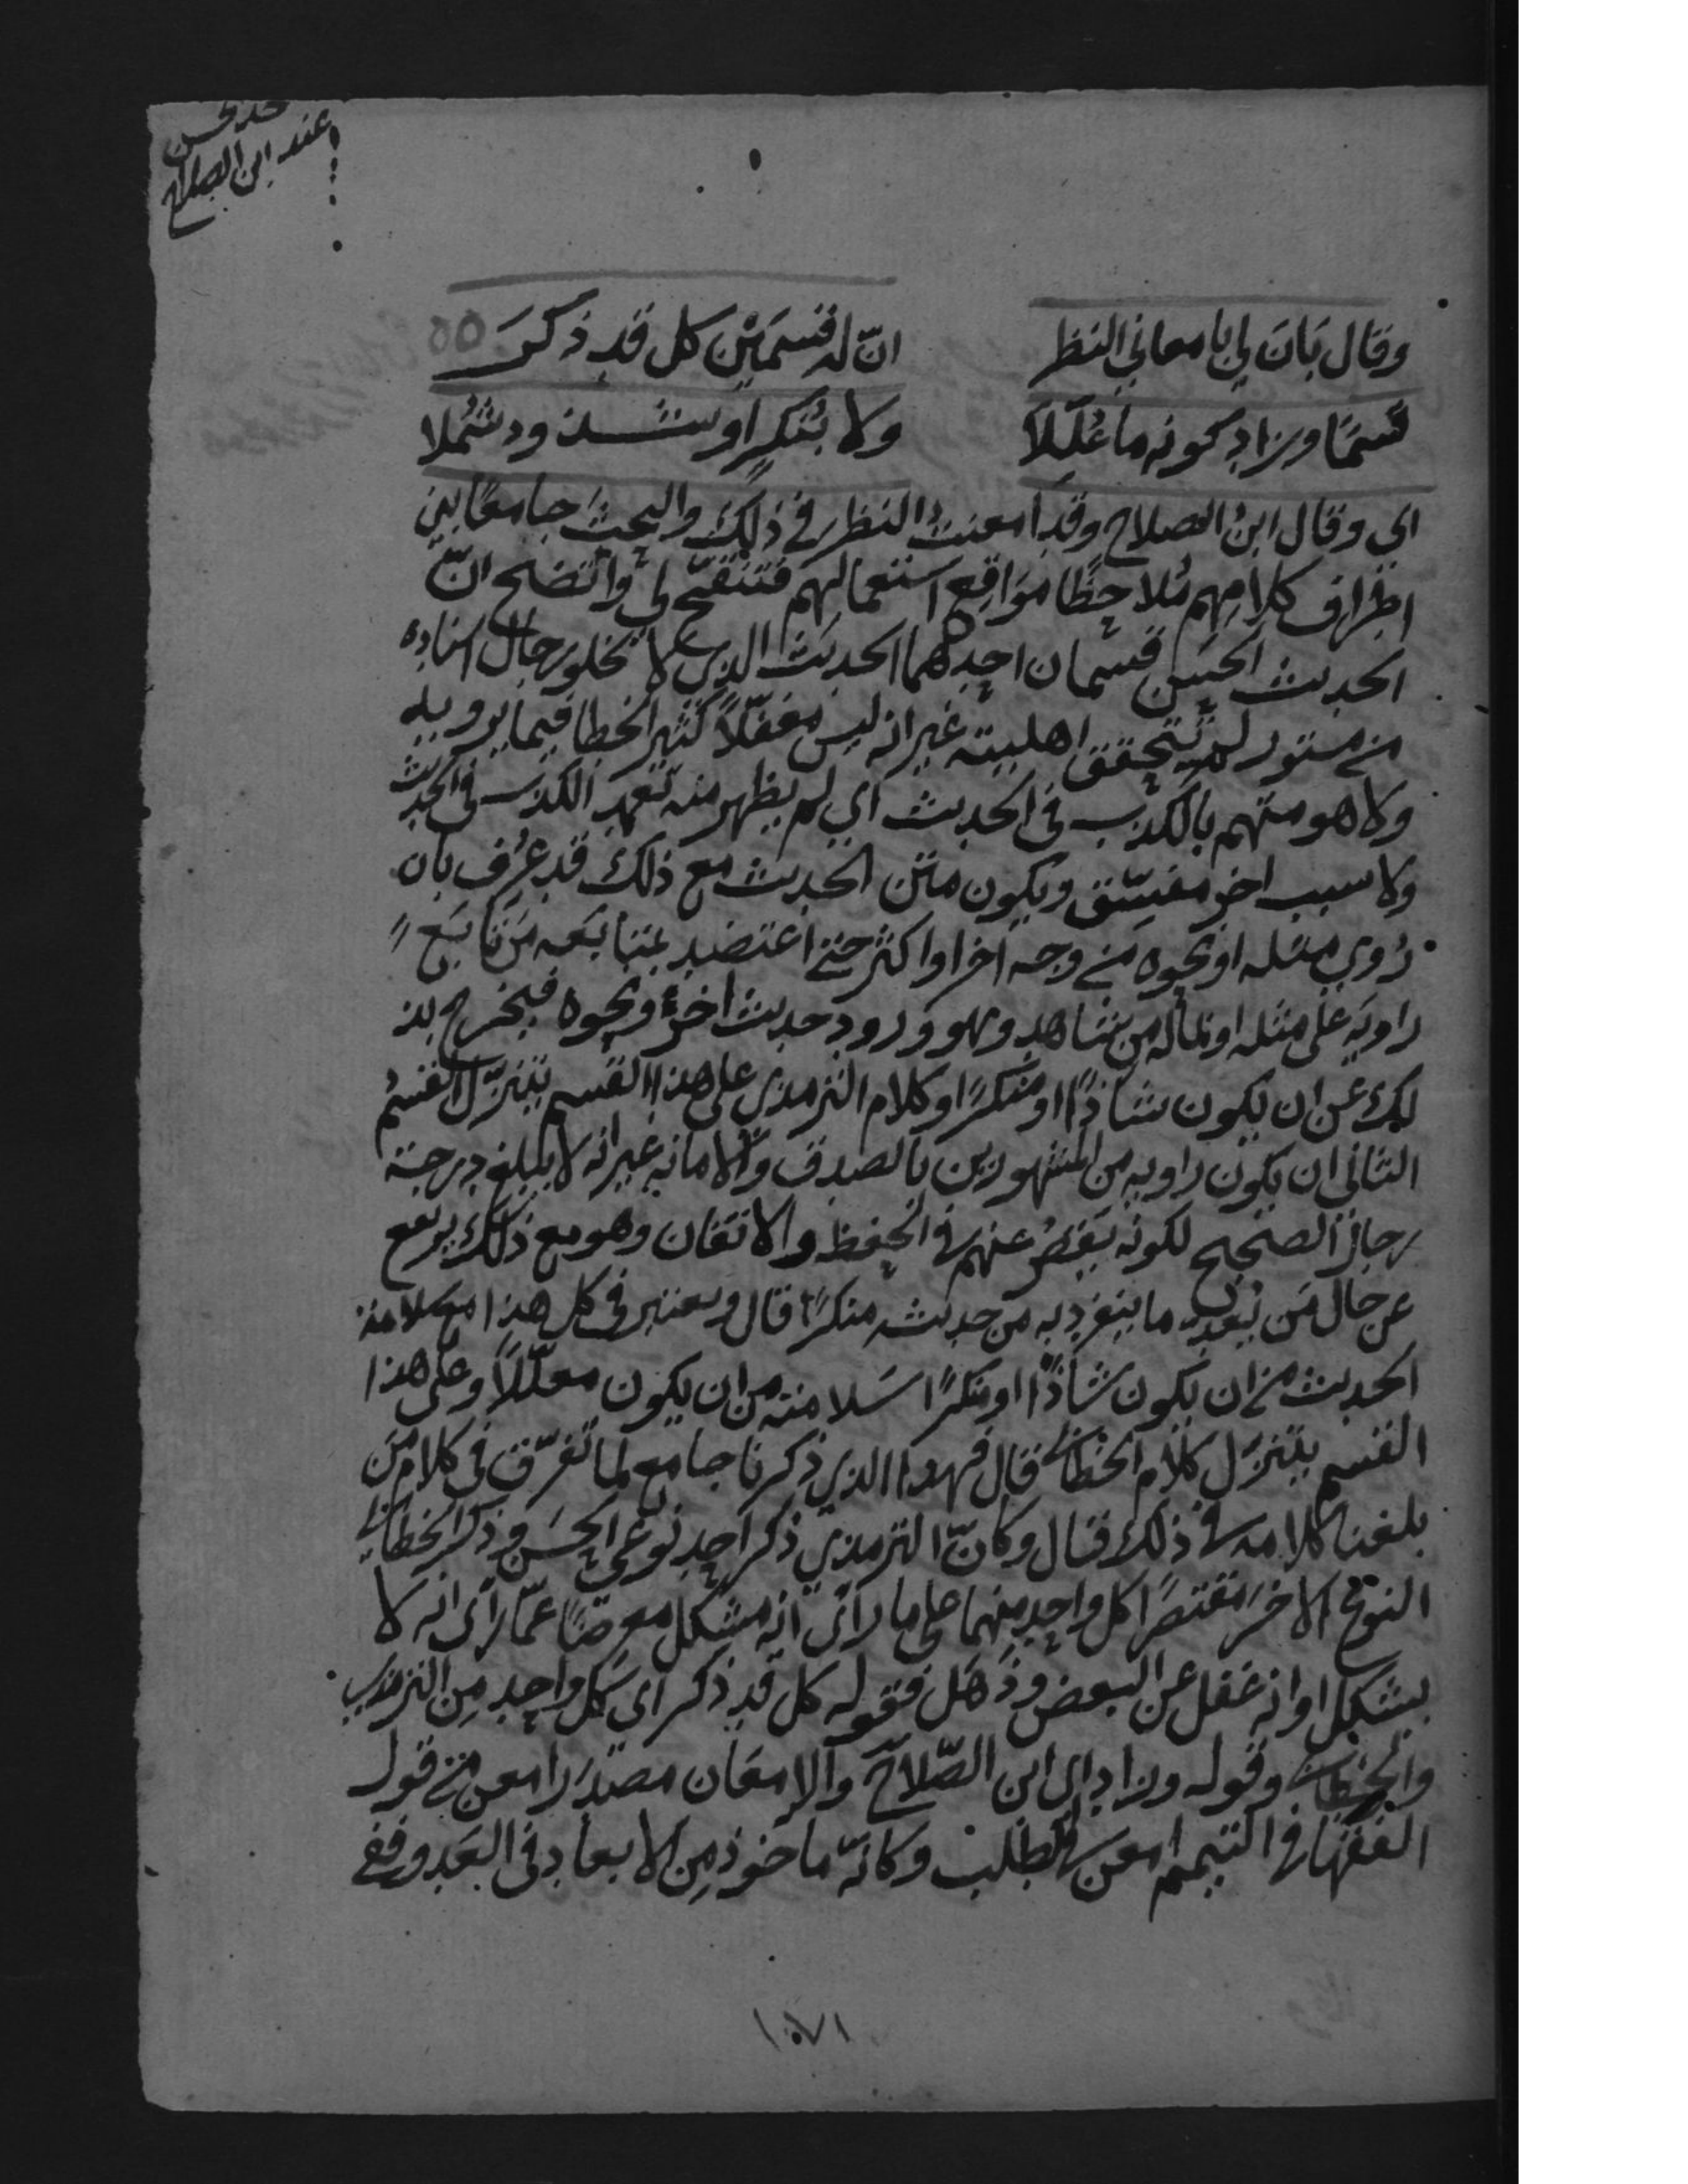 حد الحسن
عند ابن الصلاح
وقال بَانَ لي بامعاني النظر انّ له قسمَيْن كل قد ذكرَ
قسمًا وزاد كونه ما عُلّلَا ولا بنُكرٍ او شذوذ شُملا
اي وقال ابنُ الصلاح وقد امعنتُ النظر في ذلك والبحثَ جامعًا بين
اطراف كلامِهم مُلاحظًا مَوَاقِع استعمالهم فتنقّح لي واتّضح انّ
الحديث الحسن قسمان احدهما الحديث الذي لا يخلو رجال اسناده
من مستور لم تتحقق اهليته غير انه ليس مغفّلًا كثير الخطا فيما يرويه
ولا هو متهم بالكذب في الحديث اي لم يظهر منه تعمد الكذب في الحديث
ولا سبب اخر مفسّق ويكون متن الحديث مع ذلك قد عُرف بان
رُوي مثله او نحوه من وجه اخر او اكثر حتى اعتضد بمتابعة مَن تابَع
راويَه على مثله او بماله من شاهد وهو ورود حديث اخر نحوه فيخرج بذ
لك عن ان يكون شاذًا او منكرًا وكلام الترمذي على هذا القسم يتنزّل القسمُ
الثاني ان يكون راويه من المشهورين بالصدق والامانه غير انه لا يبلغ درجة
رجال الصحيح لكونه يَقصُر عنهم في الحفظ والاتقان وهو مع ذلك يرتفع
عن حال مَن يُعَدّ ما ينفرد به من حديثه منكرًا قال ويعتبر في كل هذا مع سلامة
الحديث من ان يكون شاذًّا او منكرًا سَلامته من ان يكون معلّلًا وعلى هذا
القسم يتنزّل كلام الخطابي قال فهذا الذي ذكرنا جامع لما تفرّق في كلام مَن
بلغنا كلامه في ذلك قال وكانّ الترمذي ذكر احد نوعي الحسَن وذكر الخطابي
النوع الاخرَ مقتصرًا كل واحدٍ منهما على ما راى انه مشكل معرضًا عمّا راى انه لا
يشكل او انه غفل عن البعض وذَهَل فقوله كل قد ذكر اي كل واحد مِن الترمذي
والخطابي وقوله وزاد اي ابن الصّلاح والامعان مصدرُ امعن من قول
الفقها في التيمم امعن في الطلب وكانّه ماخوذ مِن الابعاد في العَدو ففي
١٠٧١